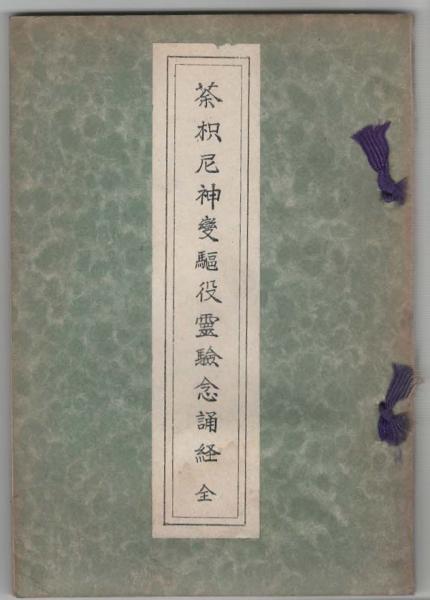 荼枳尼神變驅役靈驗念誦経 全